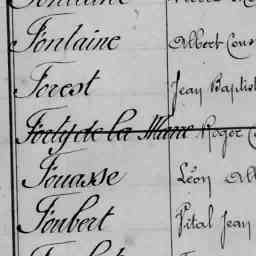 Fontaine Albert Cons
Forest Jean Baptist
Forty de la Mare Roger
Fouasse Léon Alb
Foubert Vital Jean